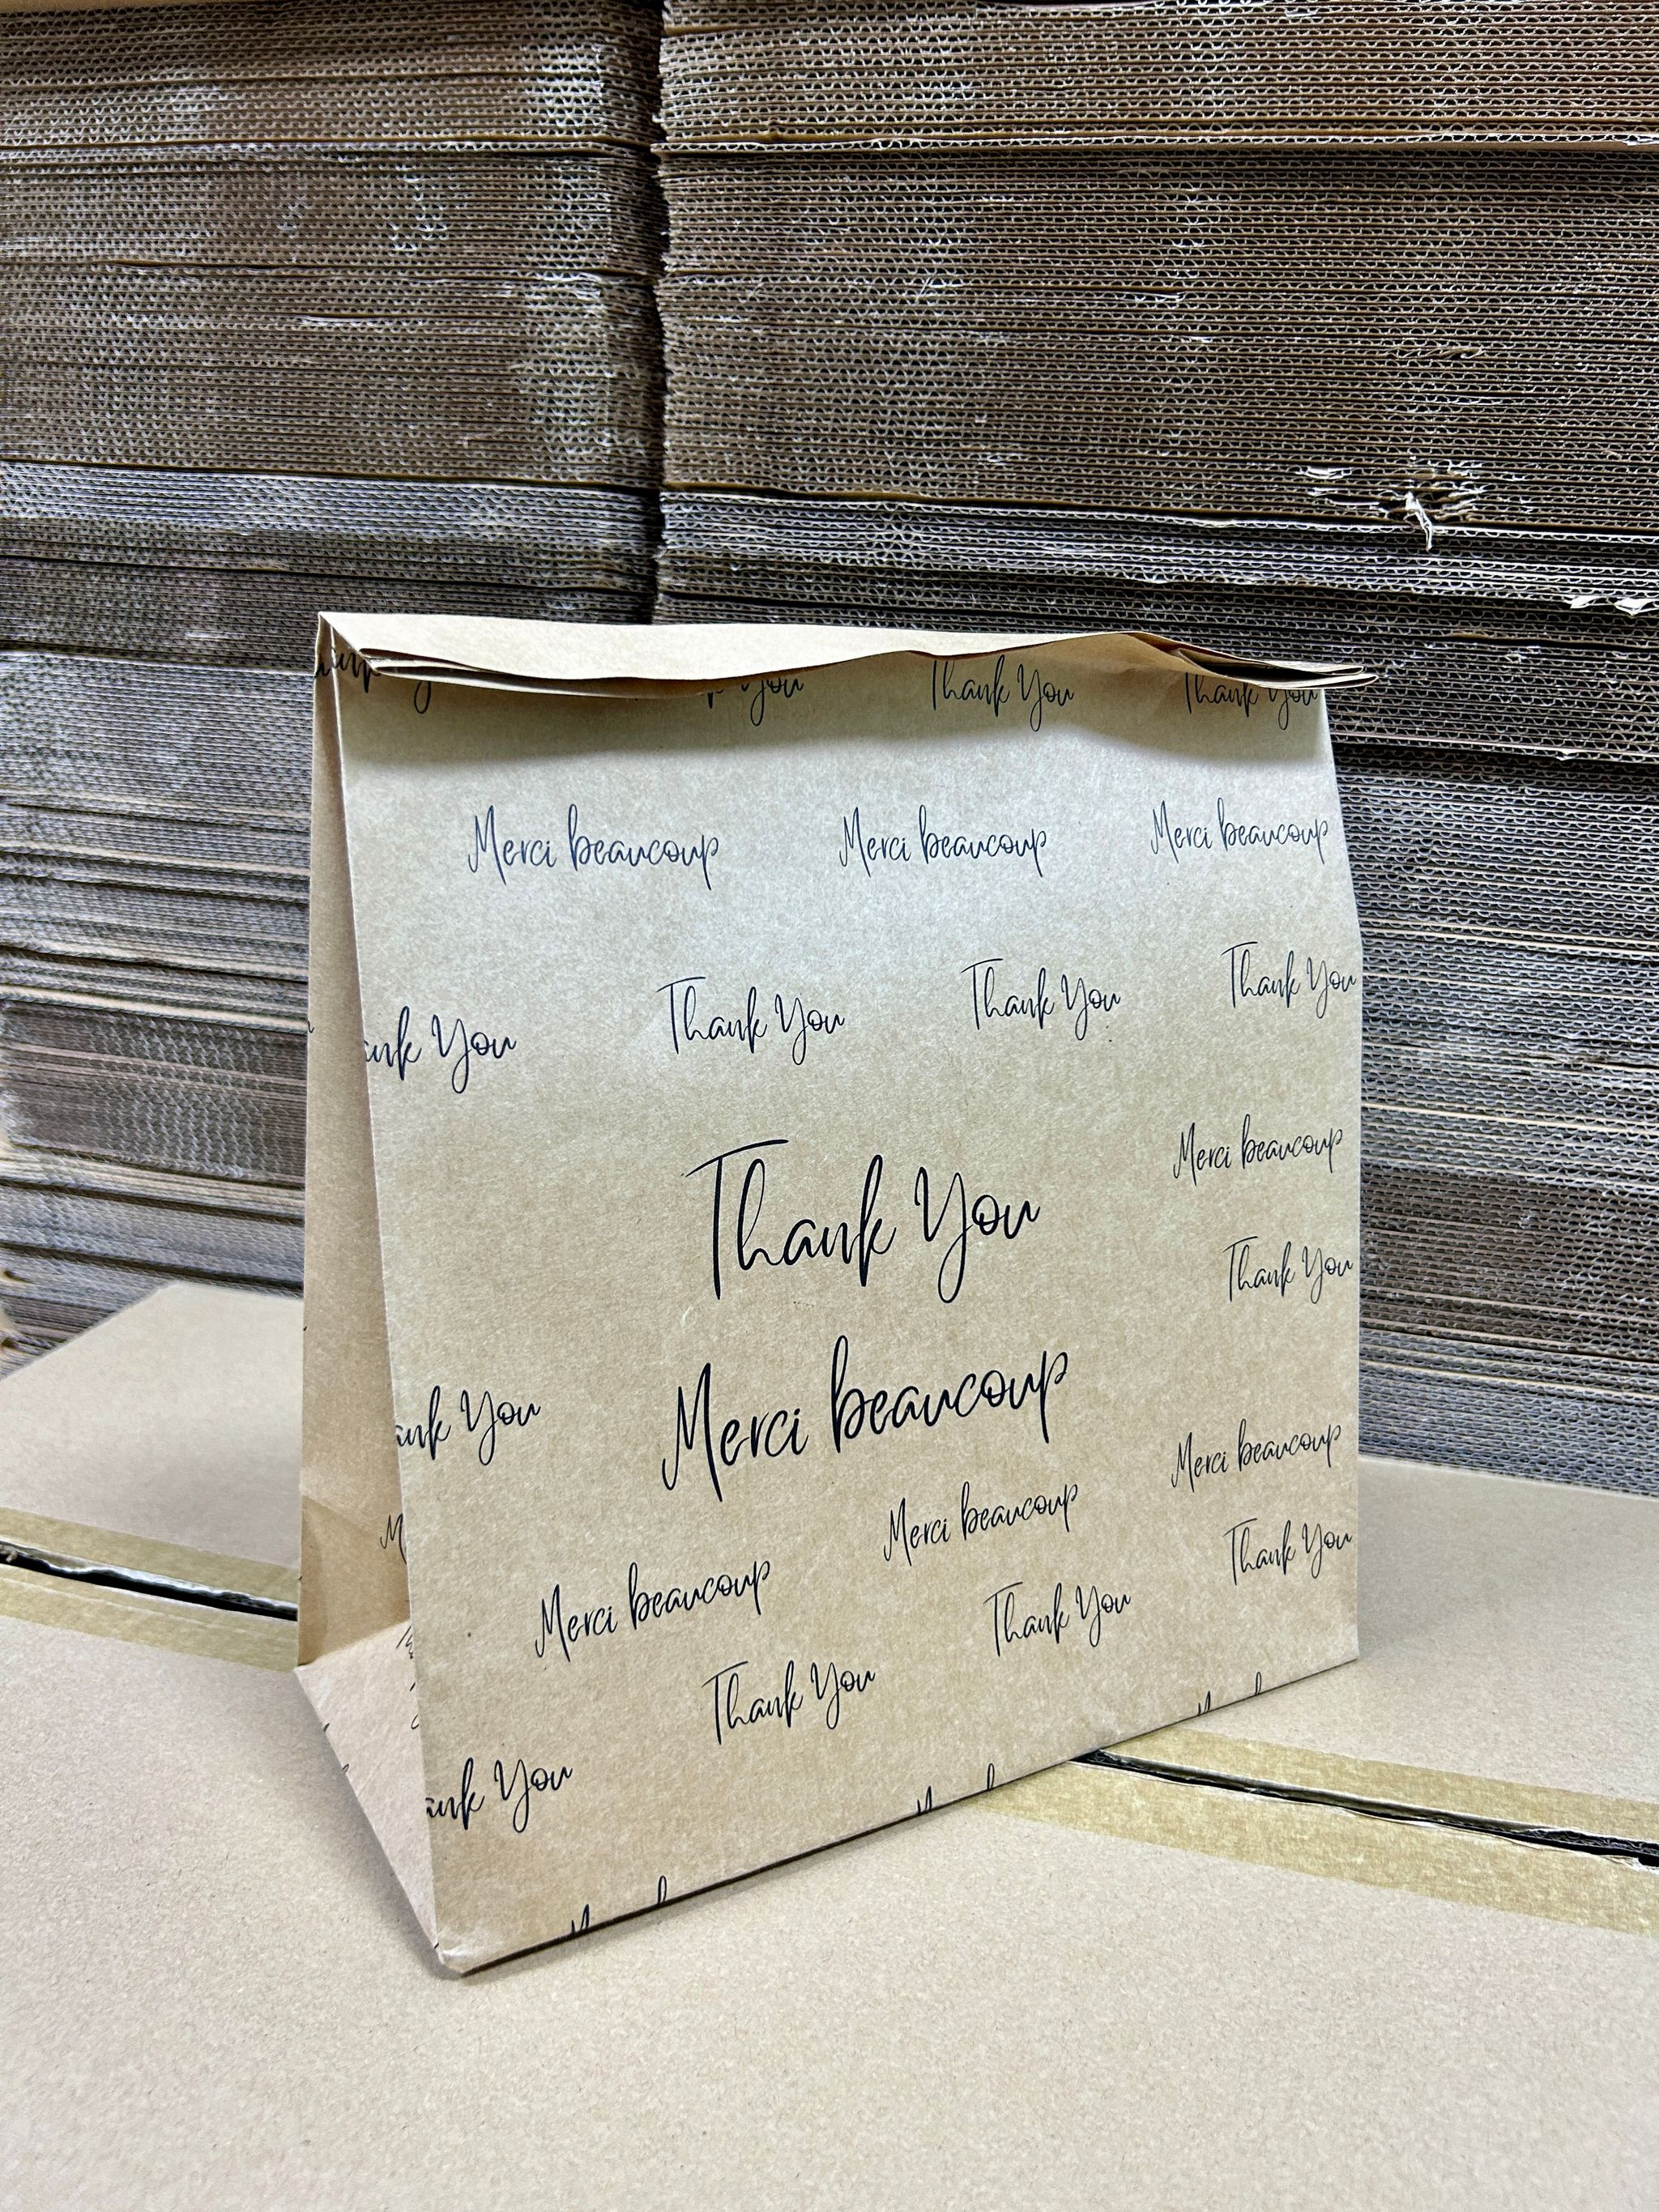 You Thank You Thank You
Merci beaucoup Merci beaucoup Merci beaucoup
You Thank You Thank You Thank You
Thank You
Merci beaucoup
Thank You
Merci beaucoup
You
Merci beaucoup
Merci beaucoup
Merci beaucoup
Thank You
Thank You
Thank You
You